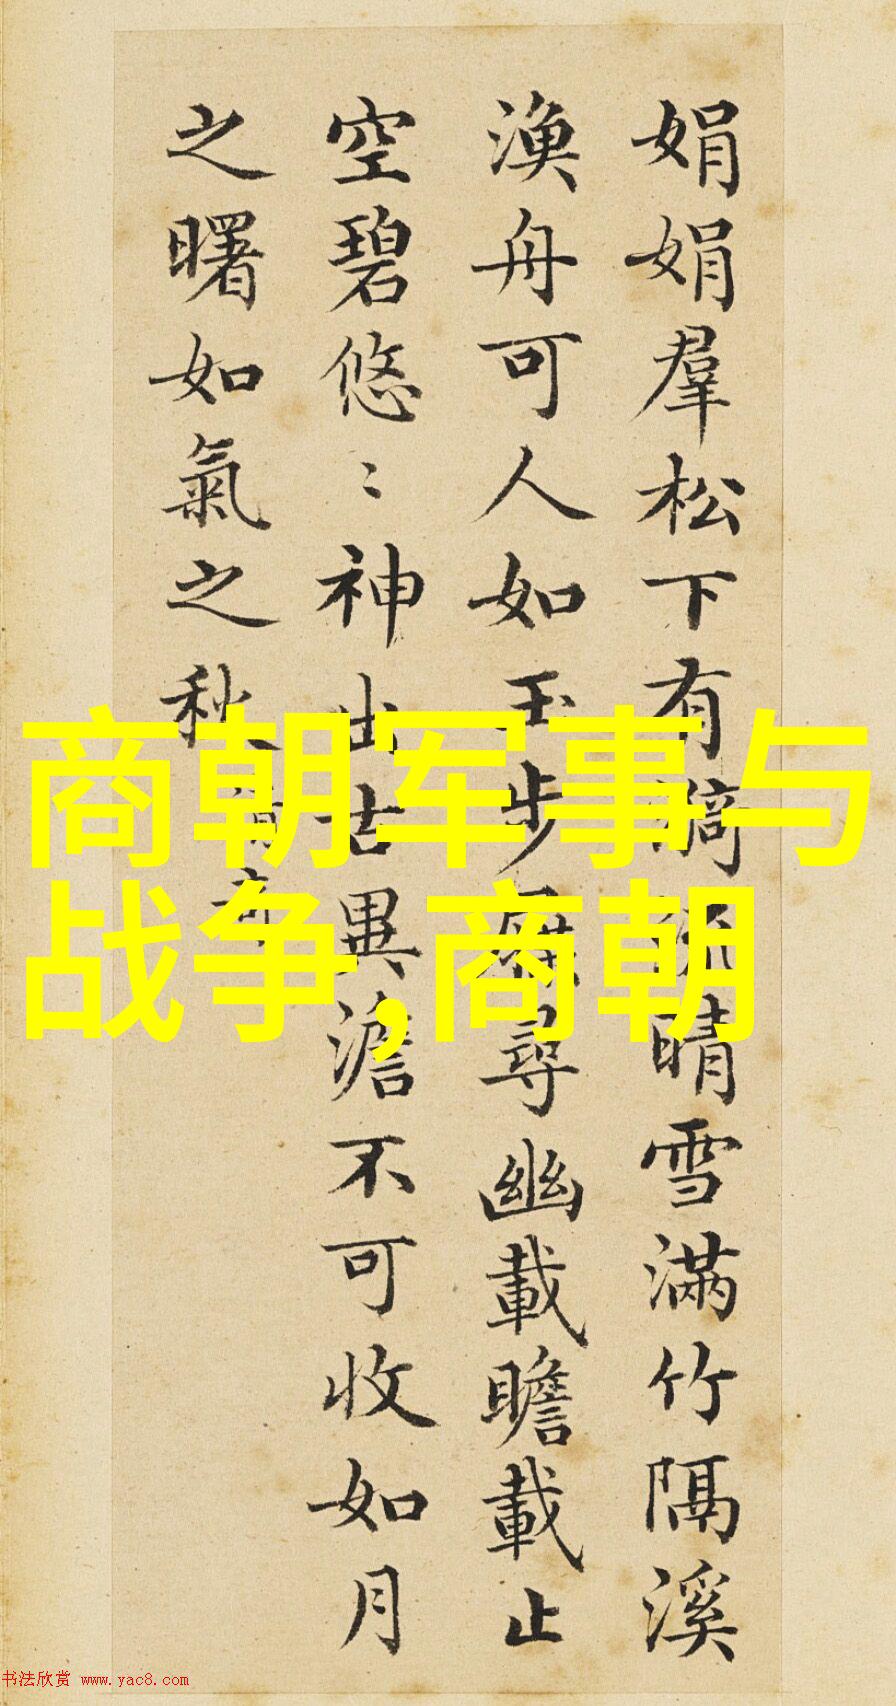 娟娟羣松下有漪流晴雪滿竹隔溪
漁舟可人如玉步屧尋幽載瞻載止
空碧悠〻神出古異澹不可收如月
之曙如氣之秋
商朝军事与
战争,商朝
书法欣赏 www.yac8.com